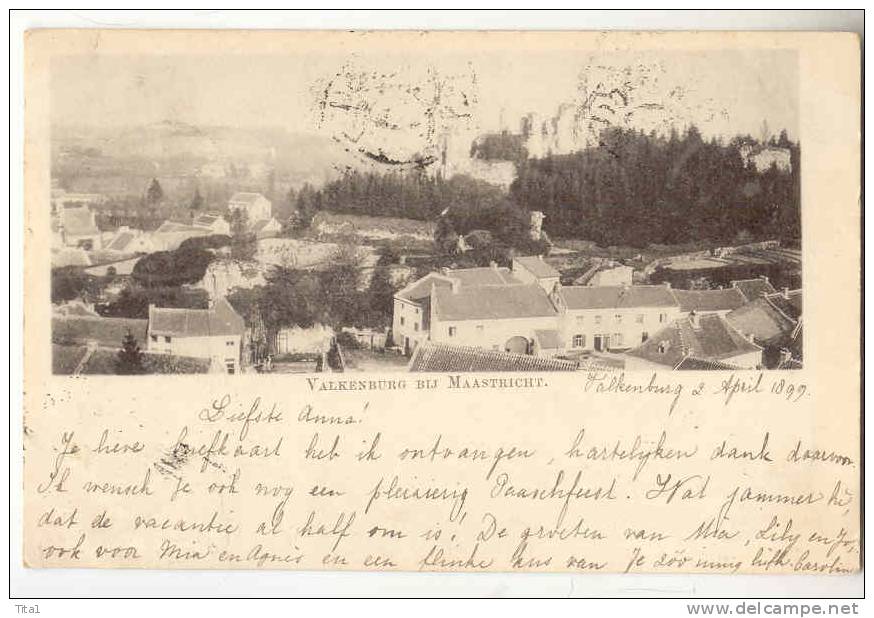 VALKENBURG BIJ MAASTRICHT.
Valkenburg 2 April 1899.
Liefste Anna!
Je lieve briefkaart heb ik ontvangen, hartelijken dank daarvoor.
Ik wensch je ook nog een pleisierig Paaschfeest. Wat jammer hè,
dat de vacantie al half om is! De groeten van Mia, Lily en Jo,
ook voor Mia en Agnès en een flinke kus van Je zóó innig liefh. Carolin
Tital
delcampe.net